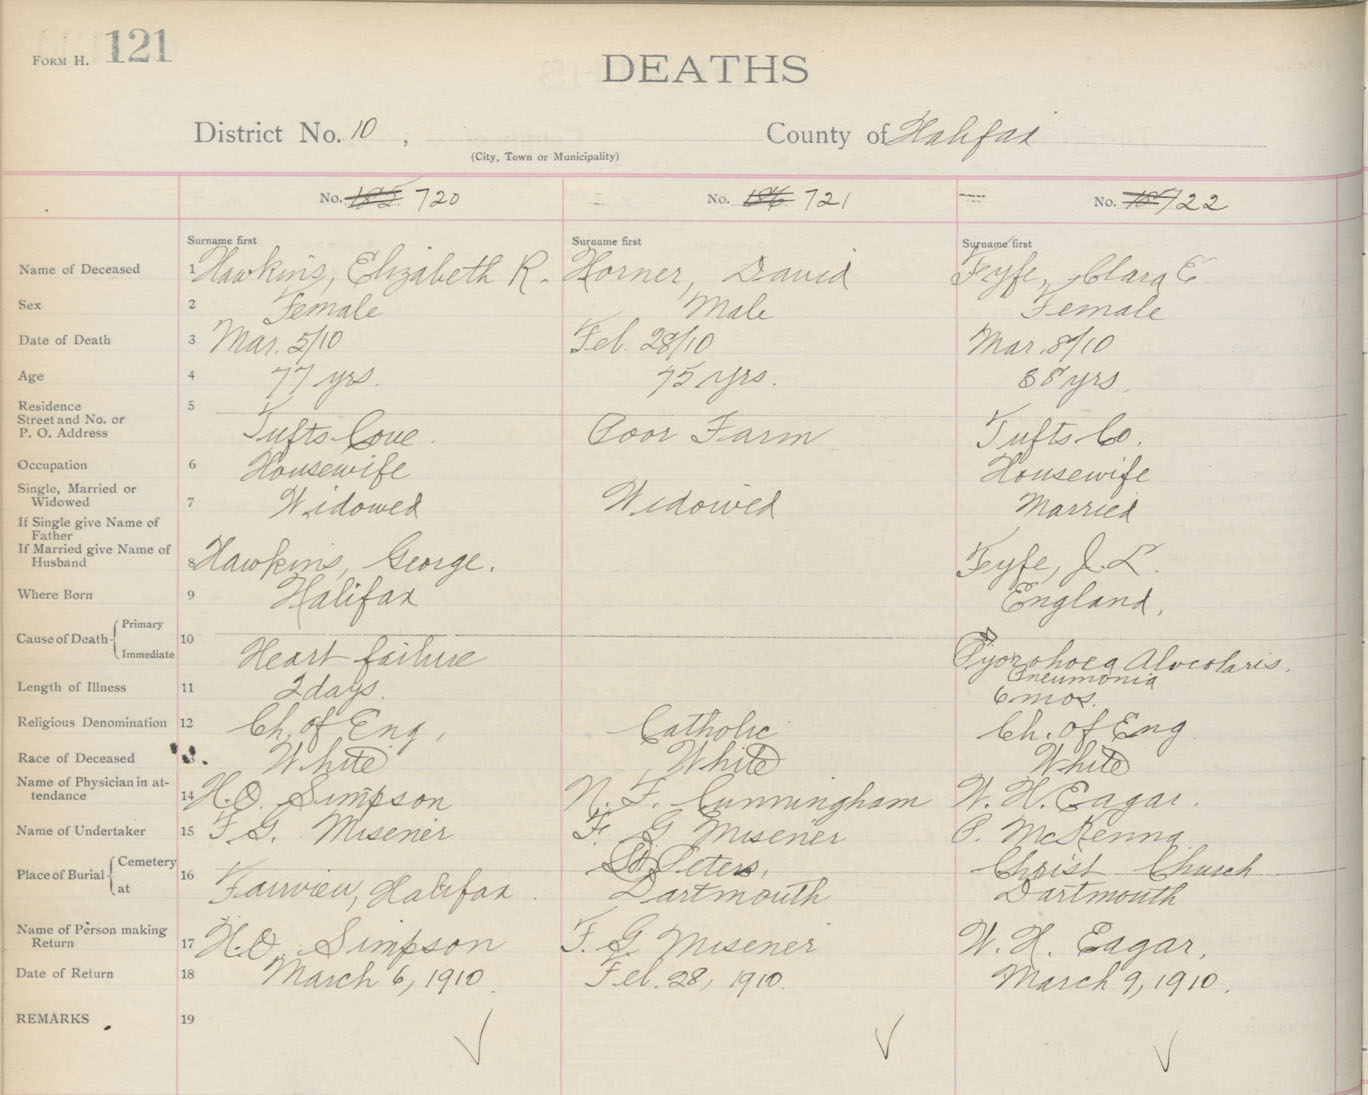 FORM H. 121
DEATHS
District No. 10 , County of Halifax
(City, Town or Municipality)
No. 185 720 No. 186 721 No. 187 722
Surname first Surname first Surname first
Name of Deceased 1 Hawkins, Elizabeth R. Horner, David Fyfe, Clara E
Sex 2 Female Male Female
Date of Death 3 Mar. 5/10 Feb. 28/10 Mar. 8/10
Age 4 77 yrs. 75 yrs. 38 yrs.
Residence 5
Street and No. or
P. O. Address Tufts Cove. Poor Farm Tufts Co.
Occupation 6 Housewife Housewife
Single, Married or
Widowed 7 Widowed Widowed Married
If Single give Name of
Father
If Married give Name of
Husband 8 Hawkins, George. Fyfe, J. L.
Where Born 9 Halifax England,
Cause of Death Primary 10
Immediate Heart failure Pyorrhoea Alveolaris.
Pneumonia
Length of Illness 11 2 days. 6 mos.
Religious Denomination 12 Ch. of Eng, Catholic Ch. of Eng
Race of Deceased 13 White White White
Name of Physician in at-
tendance 14 H.O. Simpson N. F. Cunningham W. H. Eagar.
Name of Undertaker 15 F. G. Misener F. G Misener P. McKenna
Place of Burial Cemetery 16 St Peters, Christ Church
at Fairview, Halifax. Dartmouth Dartmouth
Name of Person making
Return 17 H.O. Simpson F. G. Misener W. H. Eagar,
Date of Return 18 March 6, 1910. Feb. 28, 1910. March 9, 1910.
REMARKS 19